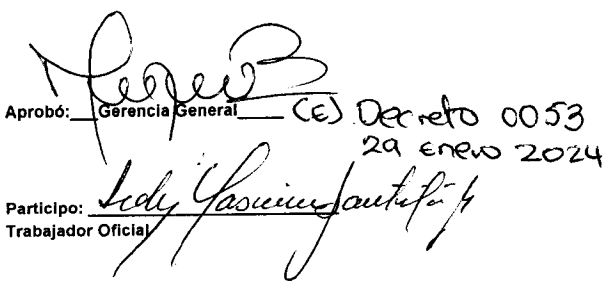 Aprobó: Gerencia General (E) Decreto 0053
29 Enero 2024
Participo: Ledy Yasmin
Trabajador Oficial